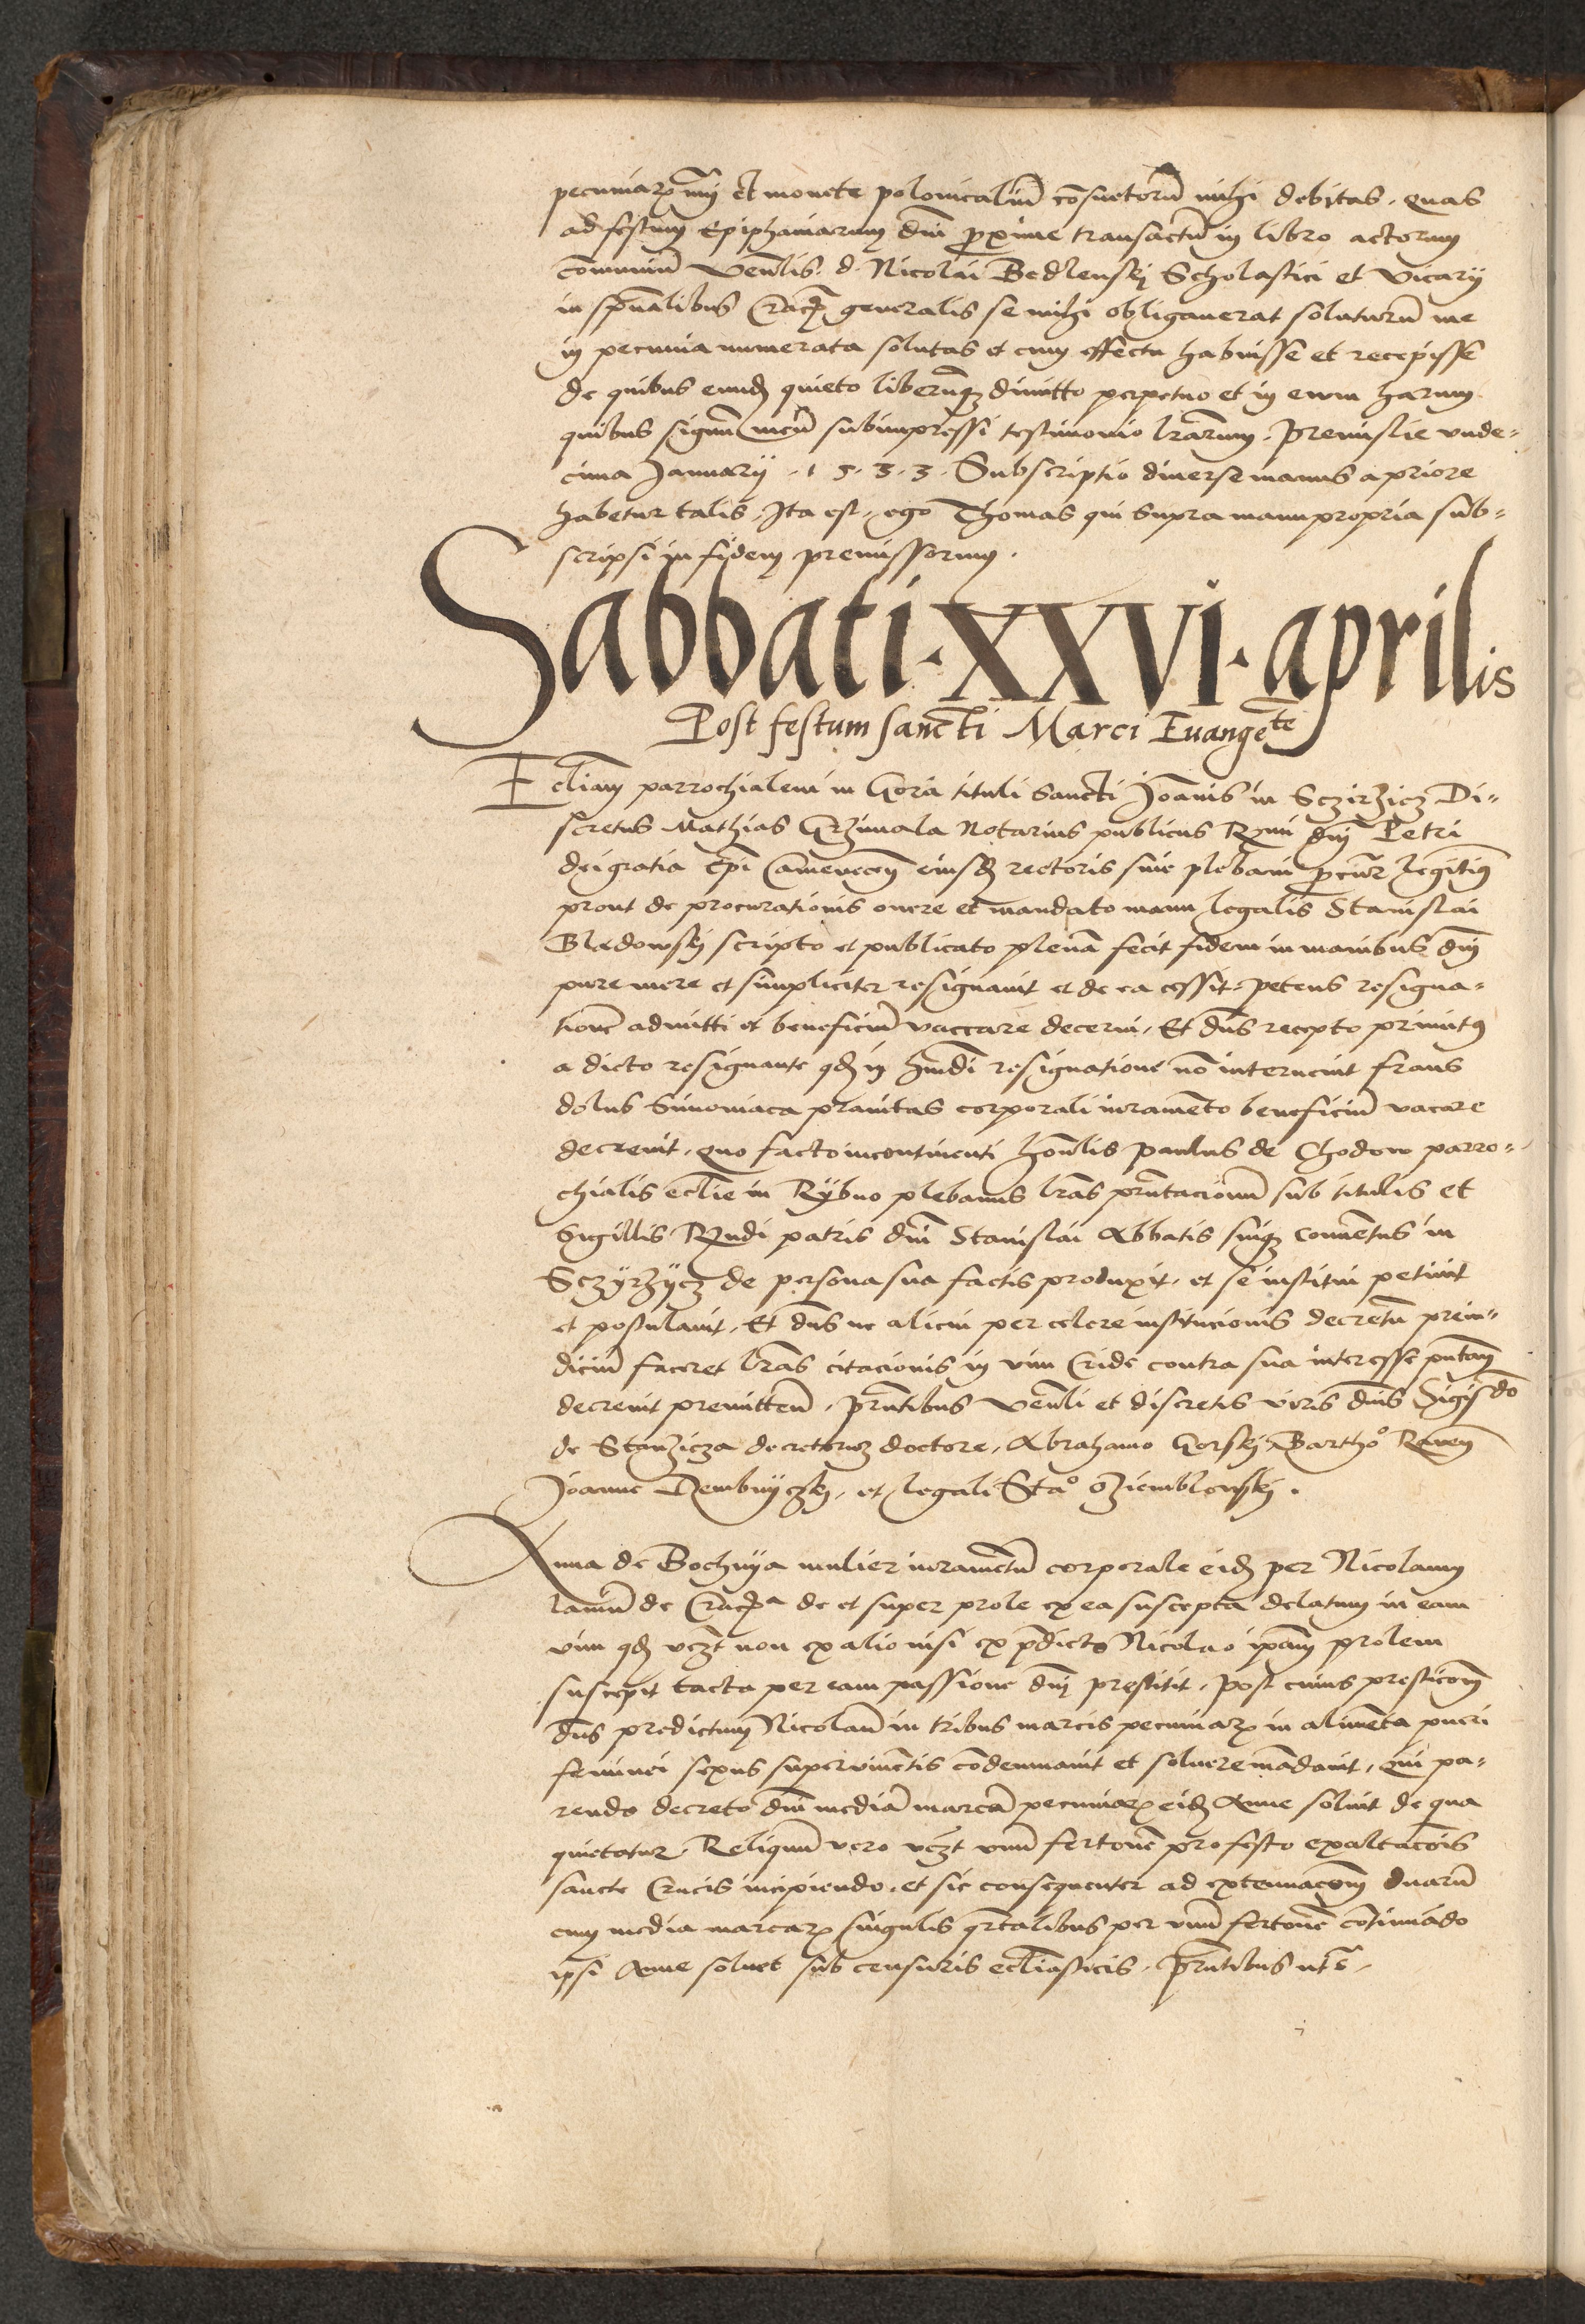 pecuniarꝫ mīj et monete polonicaliū cōsuetorū mihi debitas. quas
ad festum Epiphaniarum dnī proxime transactū in libro actorum
communiū venlis d. Nicolai Bedlenskj Scholastici et vicarij
in spūalibus Cracō generalis se mihi obligauerat soluturū me
in pecunia numerata solutas et cum effectu habuisse et recepisse
de quibus eundē quieto liberūqꝫ dimitto perpetuo et in eum harum
quibus signū meū subimpressi testimonio lrārum. Premislie vnde-
cima Januarij .1 5. 3. 3. Subscriptio diuerse manus a priore
habetur talis. Ita est, ego Thomas qui supra manu propria sub-
scripsi in fidem premissorum.
Sabbati · XXVI · aprilis
Post festum sancti Marci Euangē te
Eccliam parrochialem in Gora tituli sancti Joānis in Sczirzicz Di-
scretus Mathias Grzimala Notarius publicus Rmi dnī Petri
dei gratia Epī Camenecēn eiusdē rectoris siue plebani procur̄ legitimꝰ
prout de procurationis onere et mandato manu legalis Stanislai
Bledowskj scripto et publicato plenā fecit fidem in manibus dnī
pure mere et simpliciter resignauit et de ea cessit. petens resigna-
tionē admitti et beneficiū vaccare decerni. Et dns recepto primitꝰ
a dicto resignante qd in hmōi resignatione nō interuenit fraus
dolus Simoniaca prauitas corporali iuramēto beneficiū vacare
decreuit. quo facto incontinenti honlis Paulus de Chodow parro-
chialis ecclie in Rybno plebanus lrās pn̄tacionū sub titulis et
Sigillis Rndi patris dnī Stanislai Abbatis suiqꝫ conuētus in
Sczyrzycz de persona sua factis produxit. et se institui petiuit
et postulauit. Et dns ne alicui per celere institucionis decretū preiu-
diciū faceret lrās citacionis in vim Cride contra sua interesse putan̄
decreuit premittend̄. Pn̄tibus venli et discretis viris dnis Sigisdō
de Stanzicza decretorum doctore, Abrahamo Gorskj Barthoº Rauen̄
Joanne Dembnyczkj, et legali Staº Oziemblowskj.
Anna de Bochnya mulier iuramētū corporale eidē per Nicolaum
laniū de Cracoᵃ de et super prole ex ea suscepta delatum in eam
vim qd vcꝫt non ex alio nisi ex p̄dicto Nicolao ipam prolem
suscepit tacta per eam passione dnī prestitit. Post cuius presticōem
dns predictum Nicolaū in tribus marcis pecuniarꝫ in alimēta pueri
feminei sexus superuiuētis cōdemnauit et soluere mādauit, qui pa-
rendo decreto dnī mediā marcā pecuniarꝫ eidē Anne soluit de qua
quietatur. Reliquū vero vcꝫt vnū fertonē pro festo exaltacōis
sancte Crucis incipiendo. et sic consequenter ad extenuacōem duarū
cum media marcarꝫ singulis qrtalibus per vnū fertonē cōtinuādo
ipsi Anne soluet sub censuris ecclīasticis. Pn̄tibus vt sᵃ.